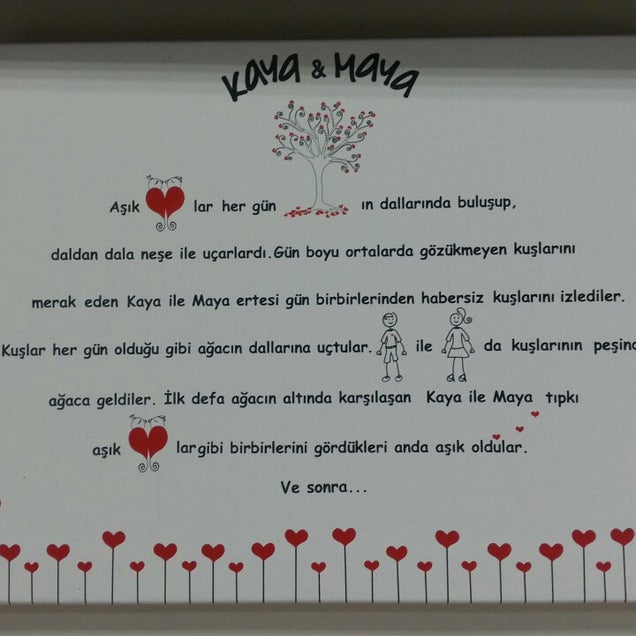 Kaya & Maya
Aşık lar her gün ın dallarında buluşup,
daldan dala neşe ile uçarlardı.Gün boyu ortalarda gözükmeyen kuşlarını
merak eden Kaya ile Maya ertesi gün birbirlerinden habersiz kuşlarını izlediler.
Kuşlar her gün olduğu gibi ağacın dallarına uçtular. ile da kuşlarının peşind
ağaca geldiler. İlk defa ağacın altında karşılaşan Kaya ile Maya tıpkı
aşık largibi birbirlerini gördükleri anda aşık oldular.
Ve sonra...